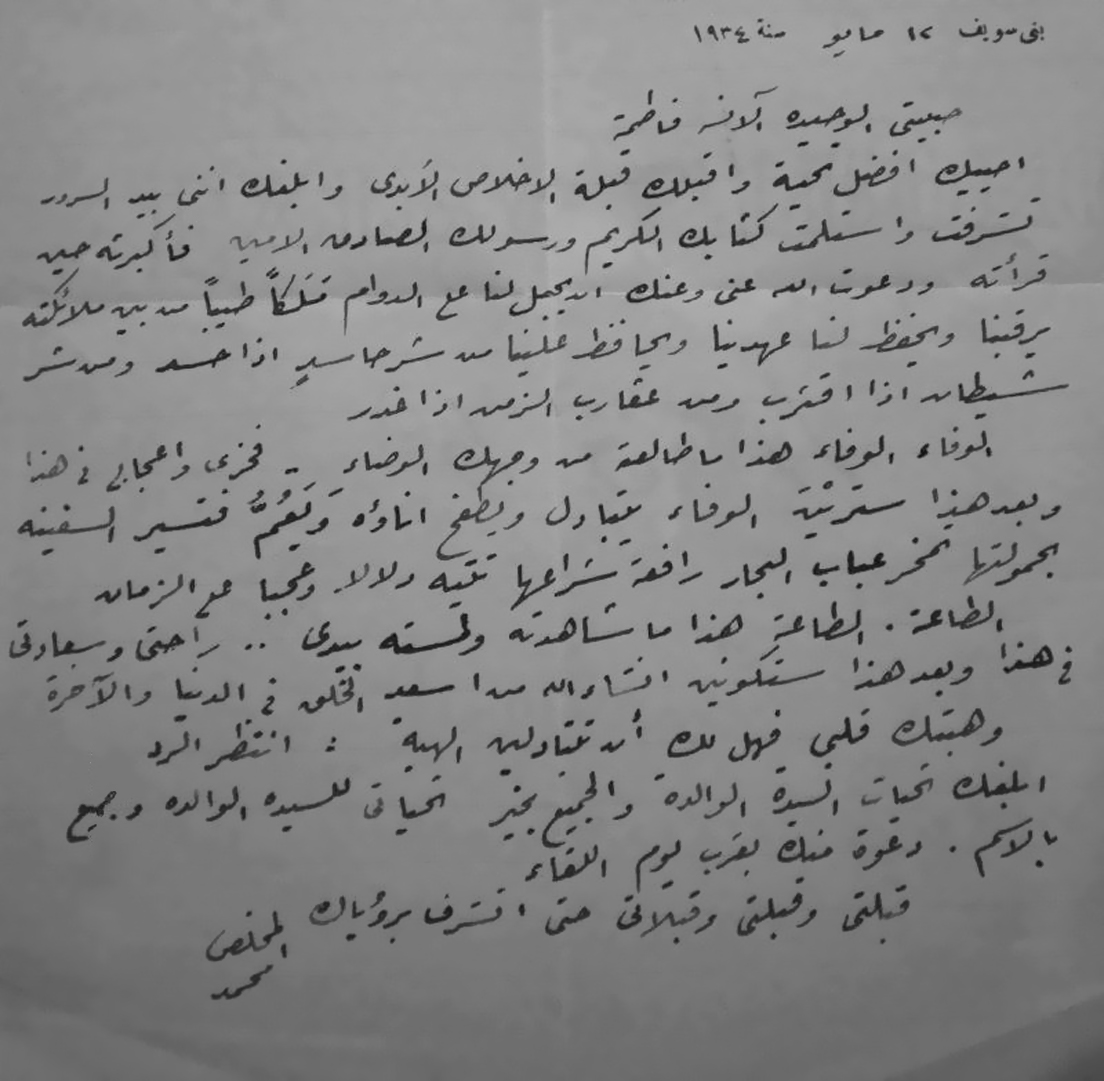 بنى سويف ١٢ مايو سنة ١٩٣٤
حبيبتى الوحيده الآنسه فاطمة
احييك افضل تحية واقبلك قبلة الاخلاص الأبدى وابلغك اننى بيد السرور
تشرفت واستلمت كتابك الكريم ورسولك الصادق الامين فأكبرته حين
قرأته ودعوت الله عنى وعنك ان يجعل لنا مع الدوام مَلَكاً طيباً من بين ملائكته
يرقبنا ويحفظ لنا عهدنا ويحافظ علينا من شر حاسدٍ اذا حسد ومن شر
شيطان اذا اقترب ومن عقارب الزمن اذا غدر
الوفاء الوفاء هذا ما طالعته من وجهك الوضاء .. فخرى واعجابى فى هذا
وبعد هذا سترين الوفاء يتبادل ويطفح اناؤه وَيَعُمُّ فتسير السفينه
بحمولتها تمخر عباب البحار رافعة شراعها تتيه دلالا وعجبا مع الزمان
الطاعة . الطاعة هذا ما شاهدته ولمسته بيدى .. راحتى وسعادتى
فى هذا وبعد هذا ستكونين انشاء الله من اسعد الخلق فى الدنيا والآخرة
وهبتك قلبى فهل لك أن تتبادلين الهبه : انتظر الرد
ابلغك تحيات السيدة الوالدة والجميع بخير تحياتى للسيده الوالده وجميع
بالاسم . دعوة منك بقرب يوم اللقاء
قبلتى وقبلتى وقبلاتى حتى اتشرف برؤياك المخلص
محمد